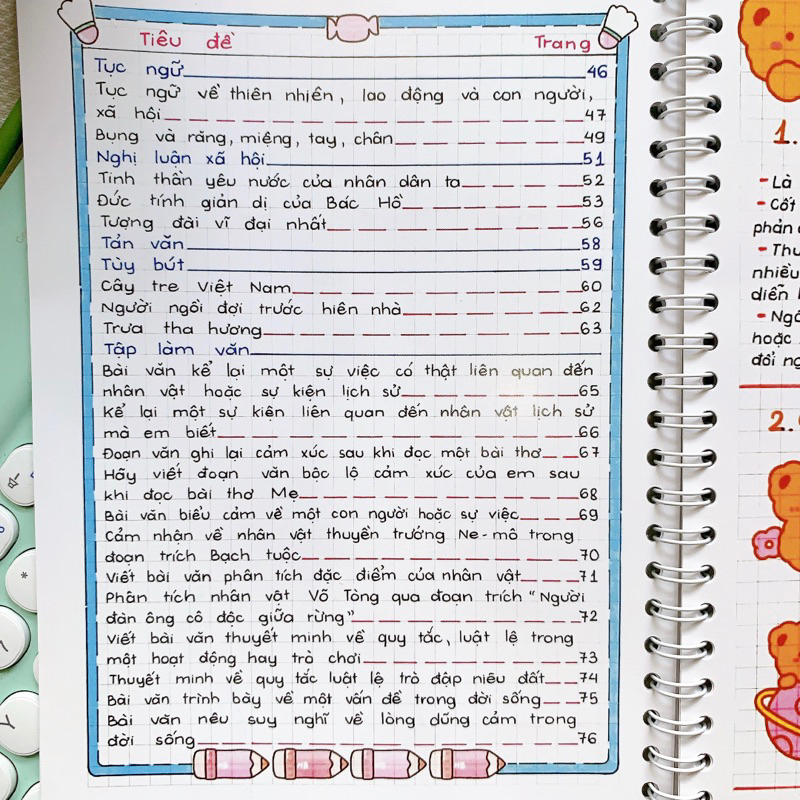 Tiêu đề Trang
Tục ngữ 46
Tục ngữ về thiên nhiên, lao động và con người,
xã hội 47
Bụng và răng, miệng, tay, chân 49
Nghị luận xã hội 51
Tinh thần yêu nước của nhân dân ta 52
Đức tính giản dị của Bác Hồ 53
Tượng đài vĩ đại nhất 56
Tản văn 58
Tùy bút 59
Cây tre Việt Nam 60
Người ngồi đợi trước hiên nhà 62
Trưa tha hương 63
Tập làm văn
Bài văn kể lại một sự việc có thật liên quan đến
nhân vật hoặc sự kiện lịch sử 65
Kể lại một sự kiện liên quan đến nhân vật lịch sử
mà em biết 66
Đoạn văn ghi lại cảm xúc sau khi đọc một bài thơ 67
Hãy viết đoạn văn bộc lộ cảm xúc của em sau
khi đọc bài thơ Mẹ 68
Bài văn biểu cảm về một con người hoặc sự việc 69
Cảm nhận về nhân vật thuyền trưởng Ne-mô trong
đoạn trích Bạch tuộc 70
Viết bài văn phân tích đặc điểm của nhân vật 71
Phân tích nhân vật Võ Tòng qua đoạn trích "Người
đàn ông cô độc giữa rừng" 72
Viết bài văn thuyết minh về quy tắc, luật lệ trong
một hoạt động hay trò chơi 73
Thuyết minh về quy tắc luật lệ trò đập niêu đất 74
Bài văn trình bày về một vấn đề trong đời sống 75
Bài văn nêu suy nghĩ về lòng dũng cảm trong
đời sống 76
1.
- Là
- Cốt
phản
- Thu
nhiều
diễn
- Ngô
hoặc
đổi ng
2.